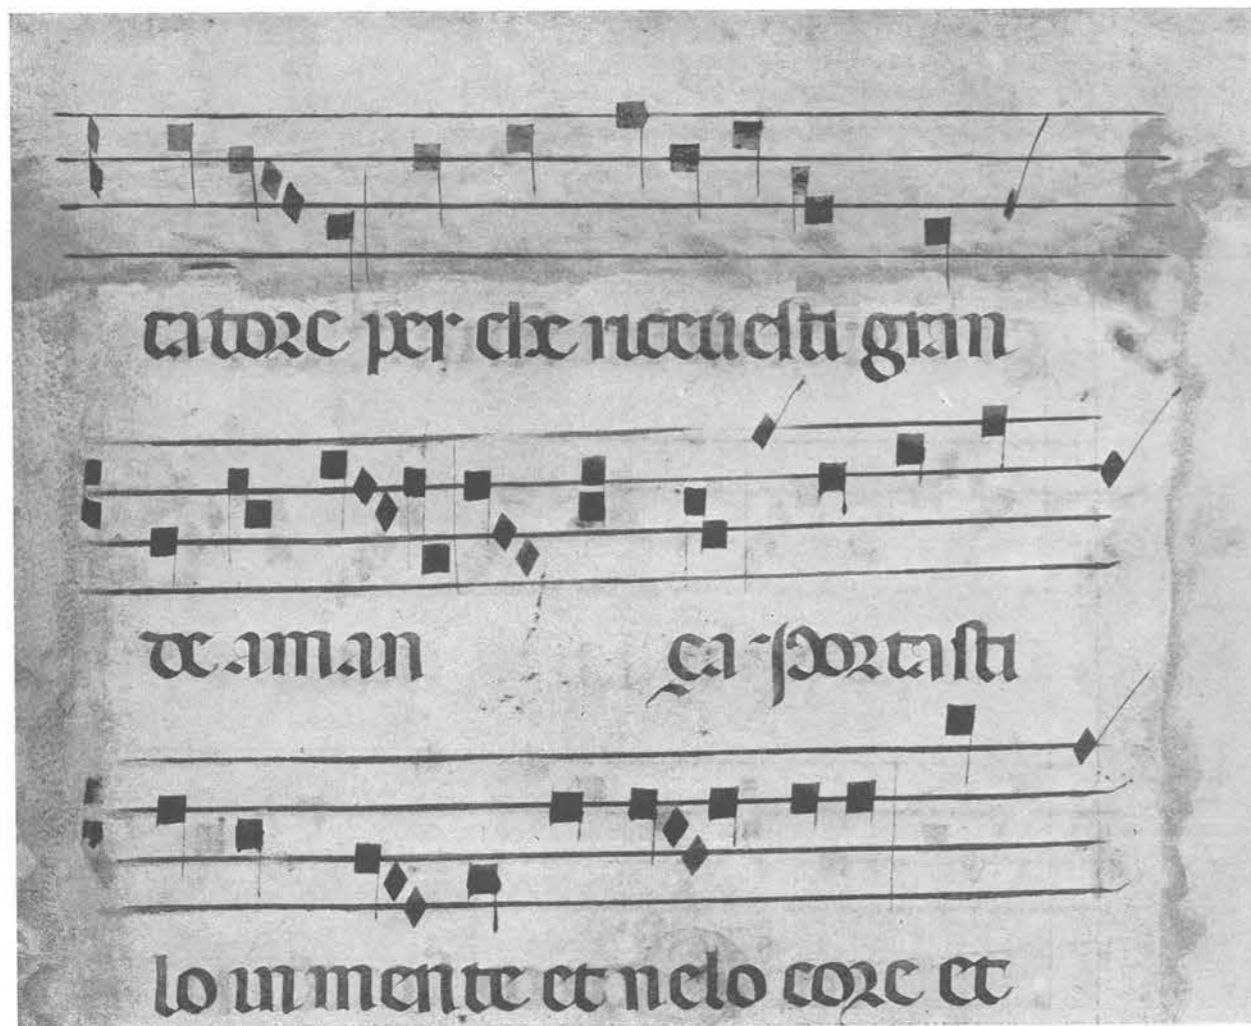 catore per che riceuesti gran
de aman ça portasti
lo in mente et nelo core et